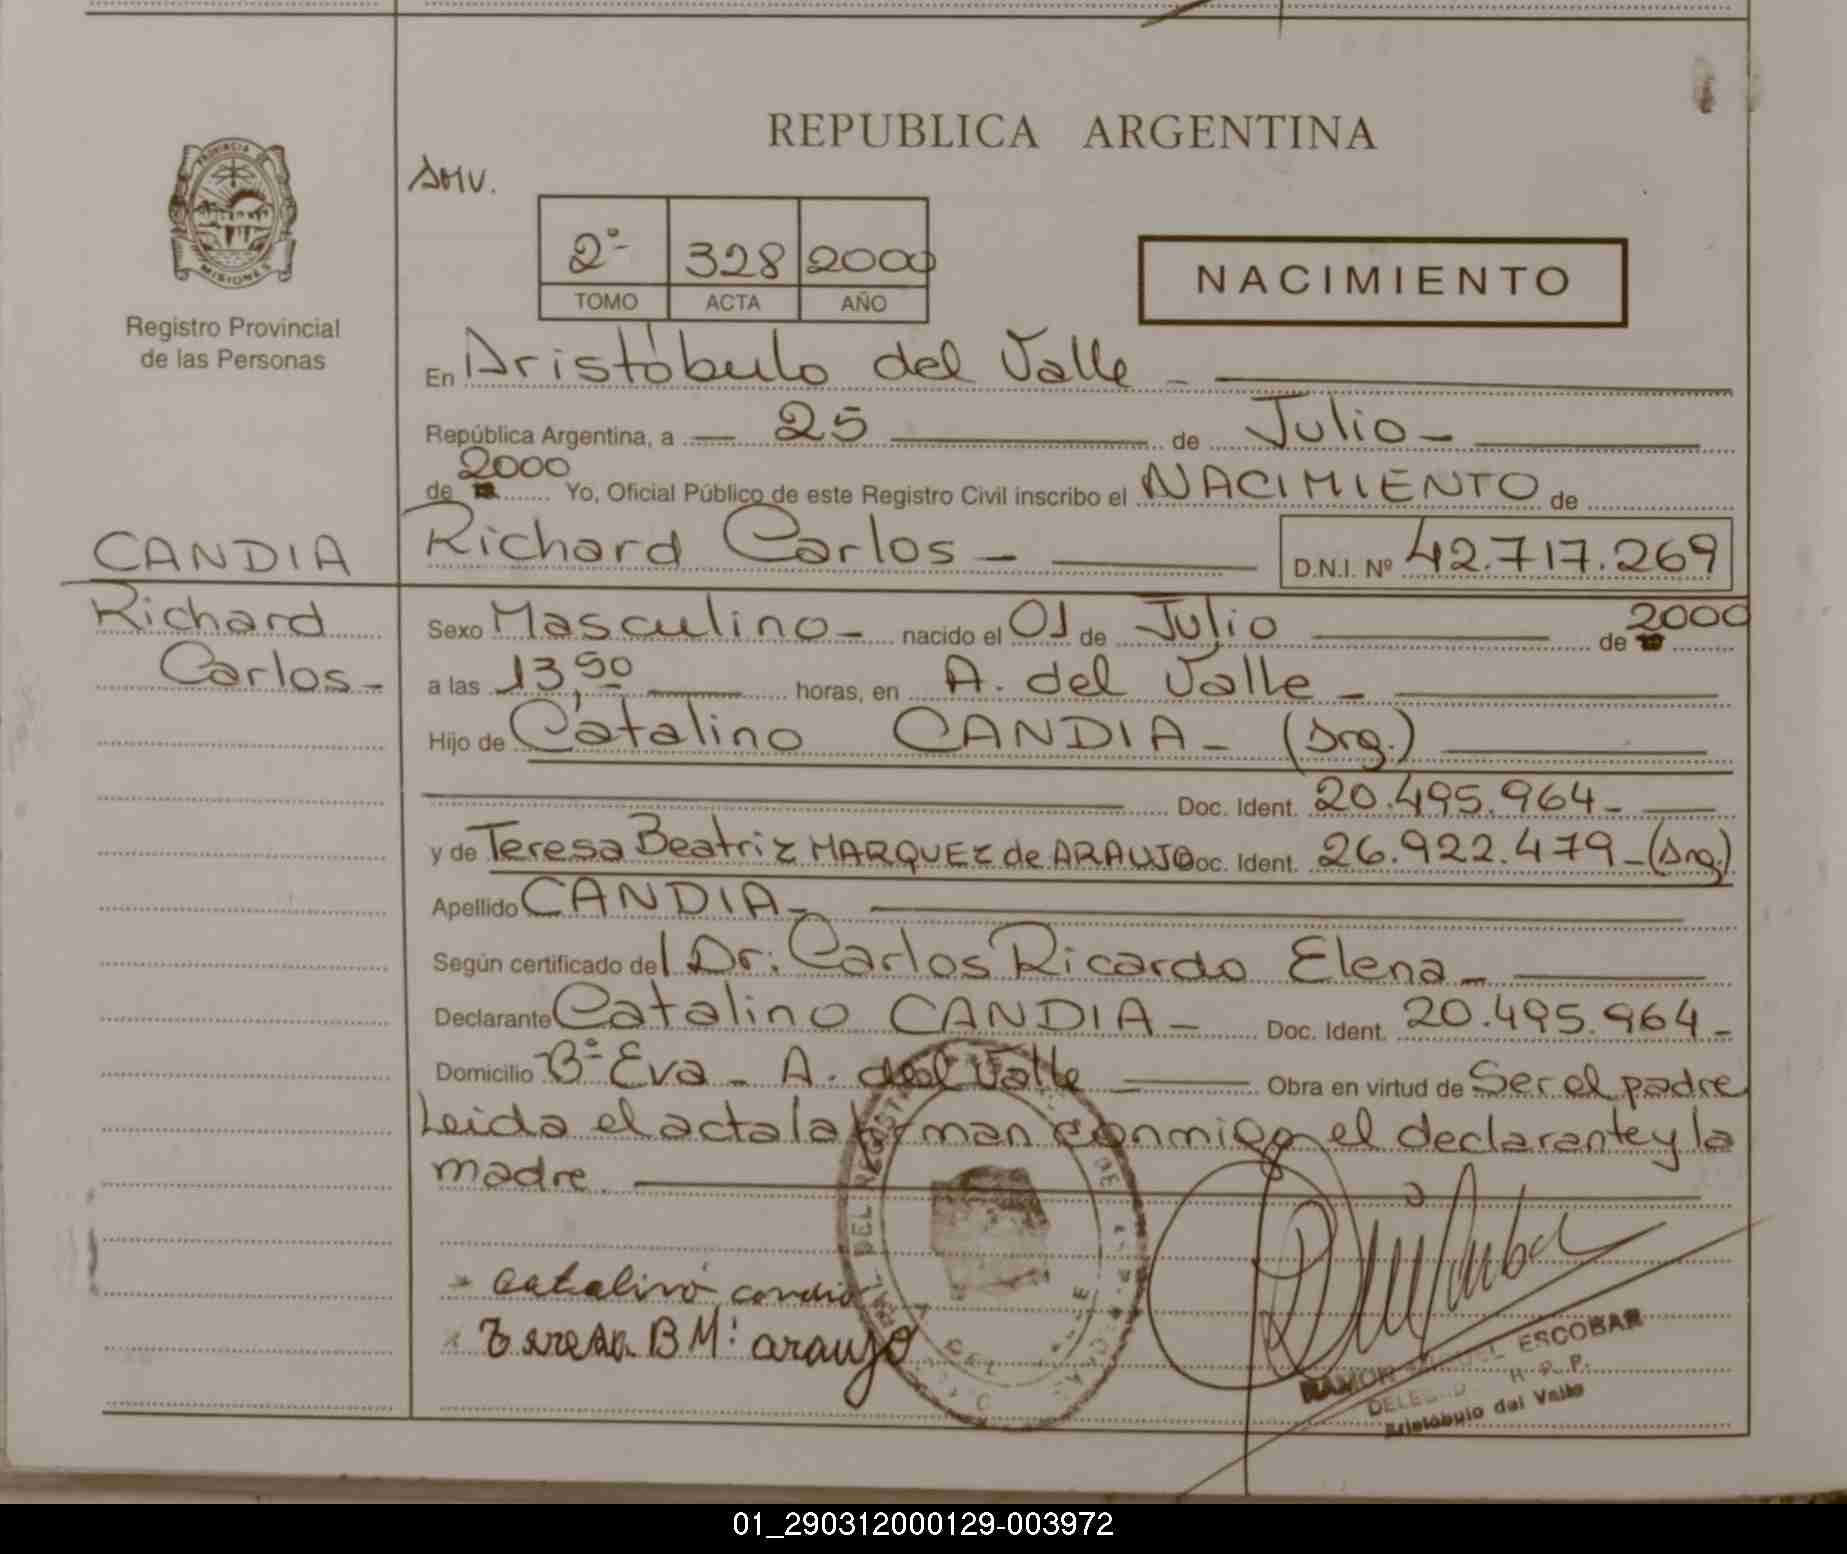 REPUBLICA ARGENTINA
PROVINCIA DE
MISIONES
Registro Provincial
de las Personas
2º 328 2000
TOMO ACTA AÑO
NACIMIENTO
En Aristóbulo del Valle
República Argentina, a 25 de Julio
de 2000 Yo, Oficial Público de este Registro Civil inscribo el NACIMIENTO de
CANDIA
Richard
Carlos
Richard Carlos D.N.I. Nº 42.717.269
Sexo Masculino nacido el 01 de Julio de 2000
a las 13,50 horas, en A. del Valle
Hijo de Catalino CANDIA (Arg.)
Doc. Ident. 20.495.964
y de Teresa Beatriz MARQUEZ de ARAUJO Doc. Ident. 26.922.479 (Arg.)
Apellido CANDIA
Según certificado del Dr. Carlos Ricardo Elena
Declarante Catalino CANDIA Doc. Ident. 20.495.964
Domicilio Bº Eva - A. del Valle Obra en virtud de Ser el padre
Leida el acta la firman conmigo el declarante y la
madre
Catalino Candia
Teresa B M: araujo
DEL REGISTR
RAMON ESCOBAR
Aristóbulo del Valle
01_290312000129-003972